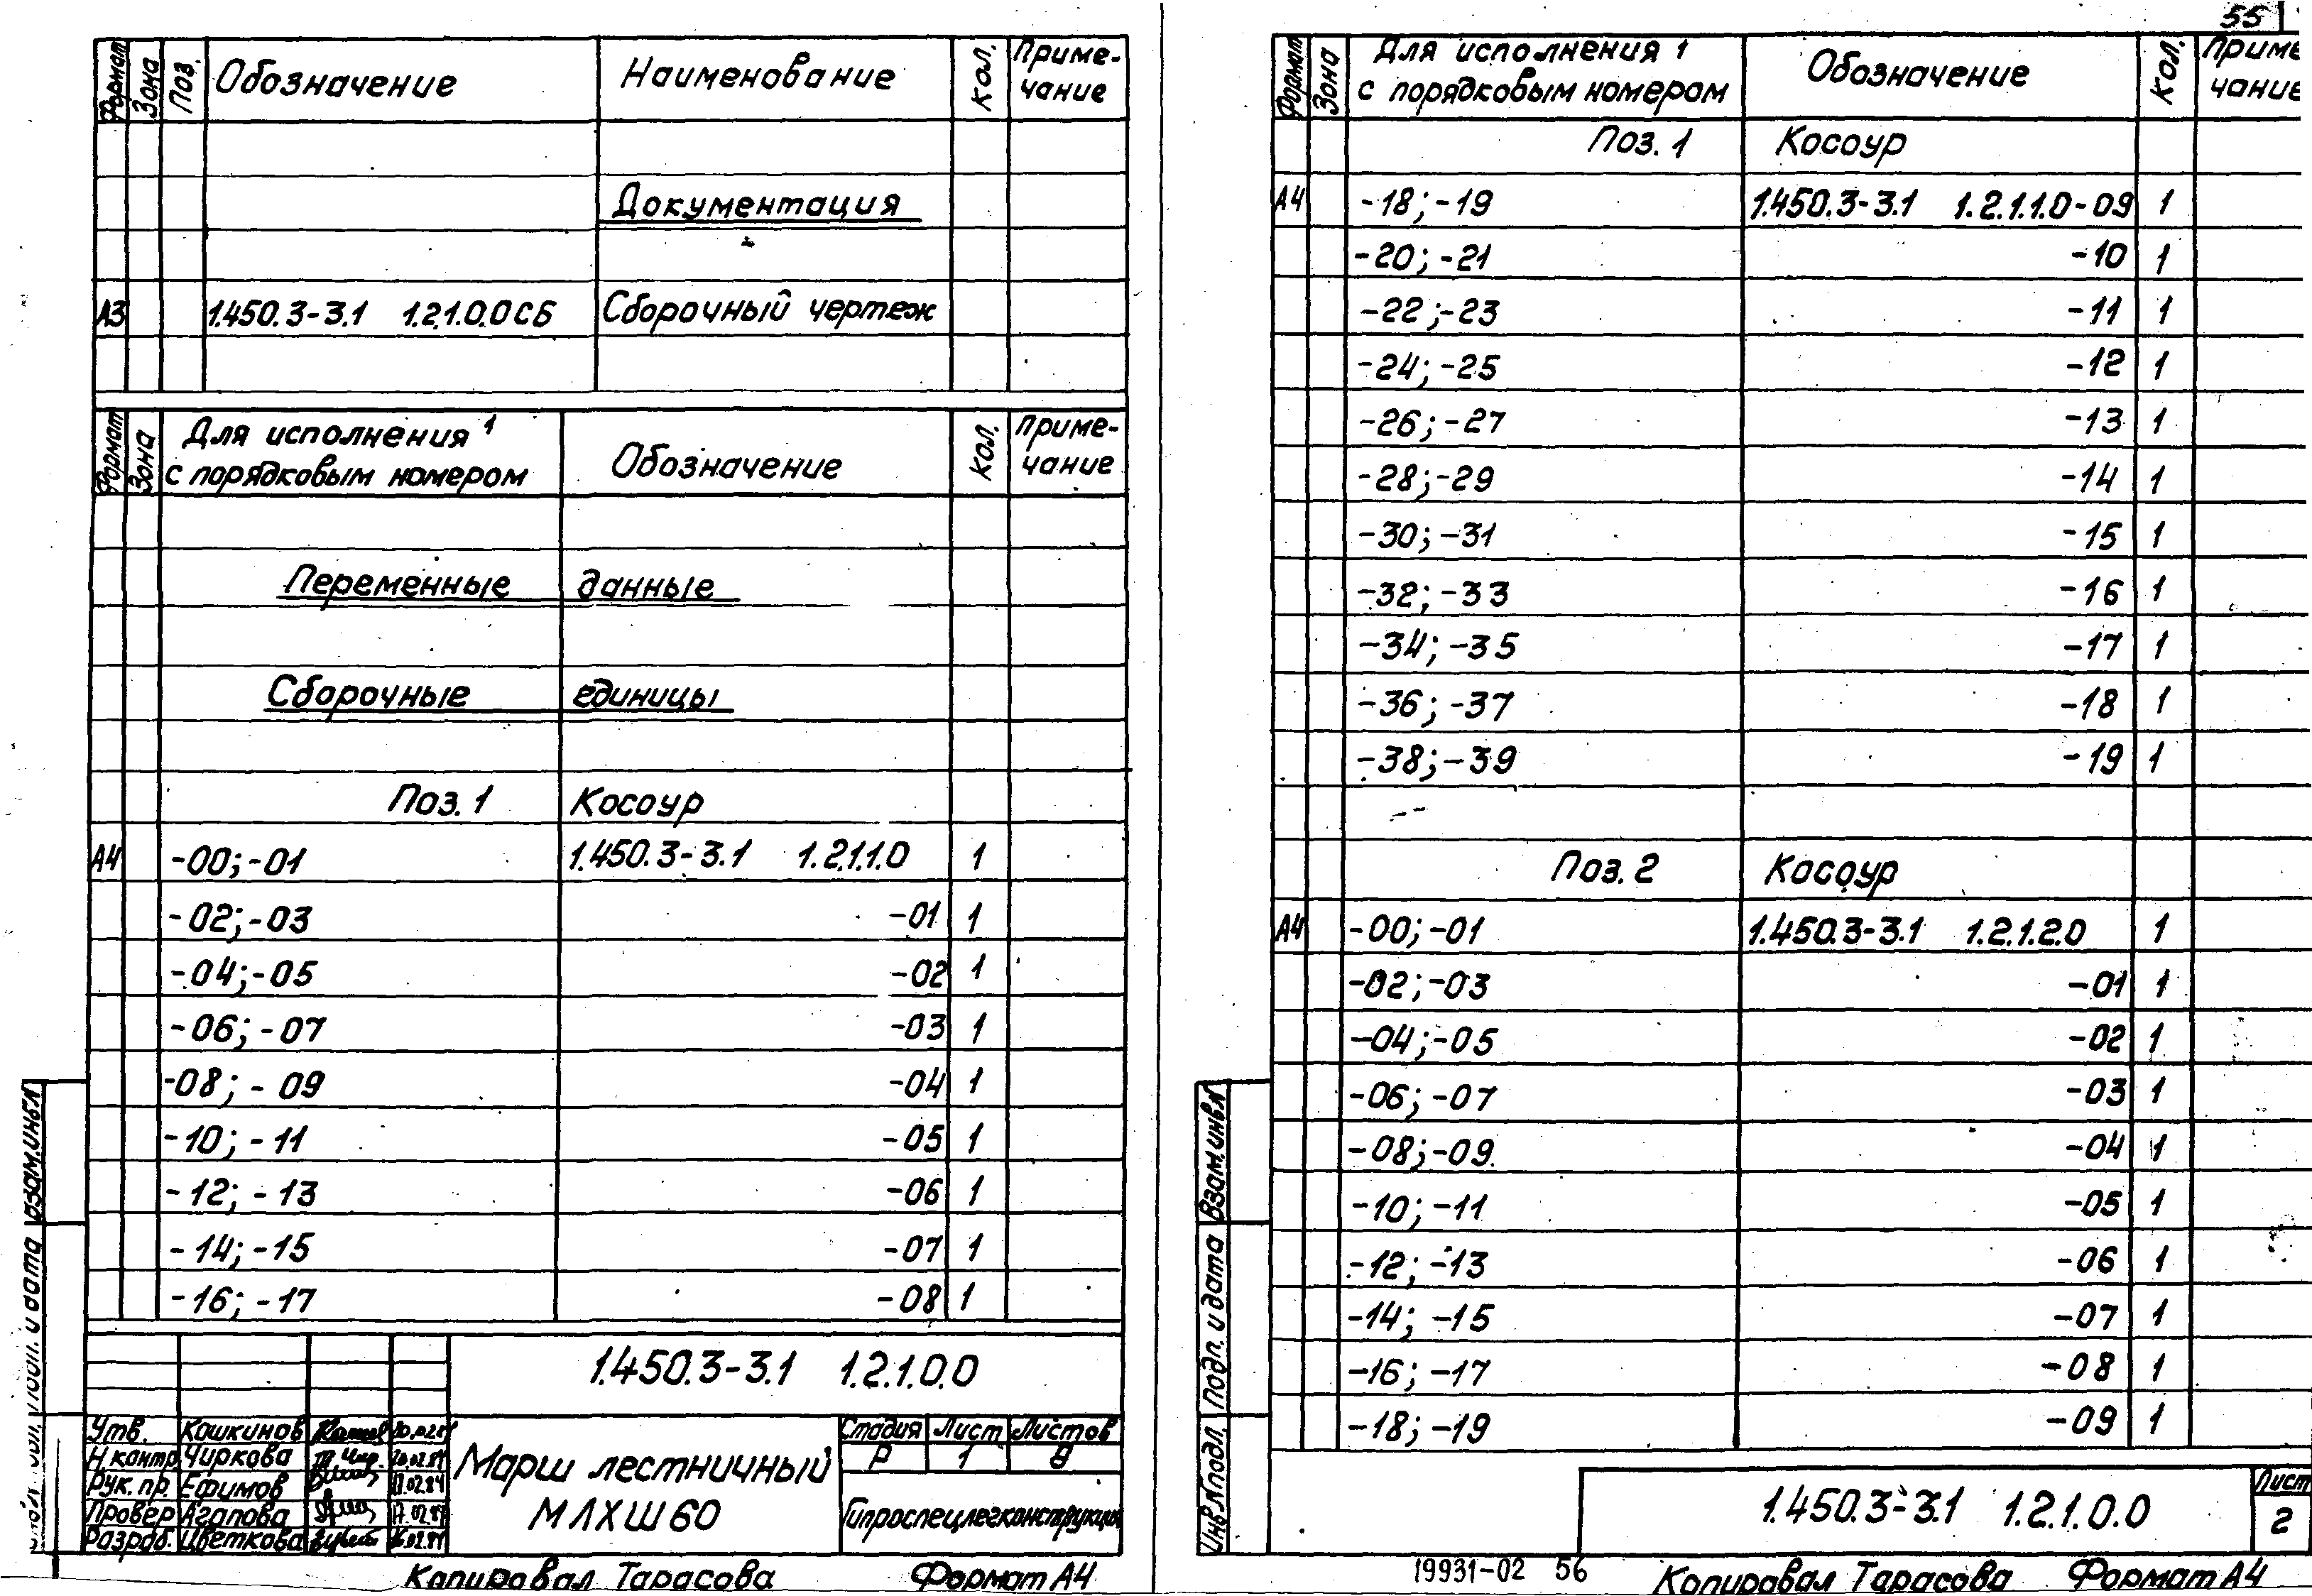 Формат Зона Поз. Обозначение Наименование Кол. Приме-
чание
Документация
А3 1.450.3-3.1 1.2.1.0.0СБ Сборочный чертеж
Формат Зона Для исполнения 1 Обозначение Кол. Приме-
с порядковым номером чание
Переменные данные
Сборочные единицы
Поз. 1 Косоур
А4 -00; -01 1.450.3-3.1 1.2.1.1.0 1
-02; -03 -01 1
-04; -05 -02 1
-06; -07 -03 1
-08; -09 -04 1
-10; -11 -05 1
-12; -13 -06 1
-14; -15 -07 1
-16; -17 -08 1
1.450.3-3.1 1.2.1.0.0
Утв. Кошкинов
Н.контр. Чиркова
Рук. пр. Ефимов 17.02.84
Провер Агапова
Разраб. Цветкова
Марш лестничный
МЛХШ60
Стадия Лист Листов
Р 1 8
Гипроспецлегконструкция
Взам.инв.N
Копировал Тарасова Формат А4
55
Формат Зона Для исполнения 1 Обозначение Кол. Приме
с порядковым номером чание
Поз. 1 Косоур
А4 -18; -19 1.450.3-3.1 1.2.1.1.0-09 1
-20; -21 -10 1
-22; -23 -11 1
-24; -25 -12 1
-26; -27 -13 1
-28; -29 -14 1
-30; -31 -15 1
-32; -33 -16 1
-34; -35 -17 1
-36; -37 -18 1
-38; -39 -19 1
Поз. 2 Косоур
А4 -00; -01 1.450.3-3.1 1.2.1.2.0 1
-02; -03 -01 1
-04; -05 -02 1
-06; -07 -03 1
-08; -09 -04 1
-10; -11 -05 1
-12; -13 -06 1
-14; -15 -07 1
-16; -17 -08 1
-18; -19 -09 1
Инв.N подл. Подп. и дата Взам.инв.N
1.450.3-3.1 1.2.1.0.0
Лист
2
19931-02 56
Копировал Тарасова Формат А4